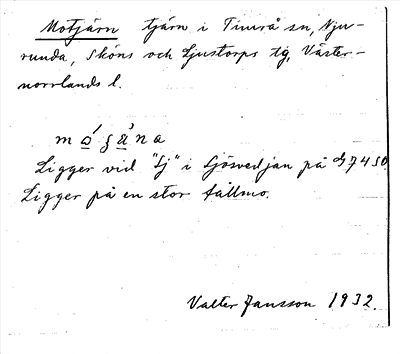 Motjärn tjärn i Timrå sn, Nju-
runda, Sköns och Ljustorps tg, Väster-
norrlands l.
Ligger vid "Sj" i Sjösvedjan på
Ligger på en stor tallmo.
Valter Jansson 1932.